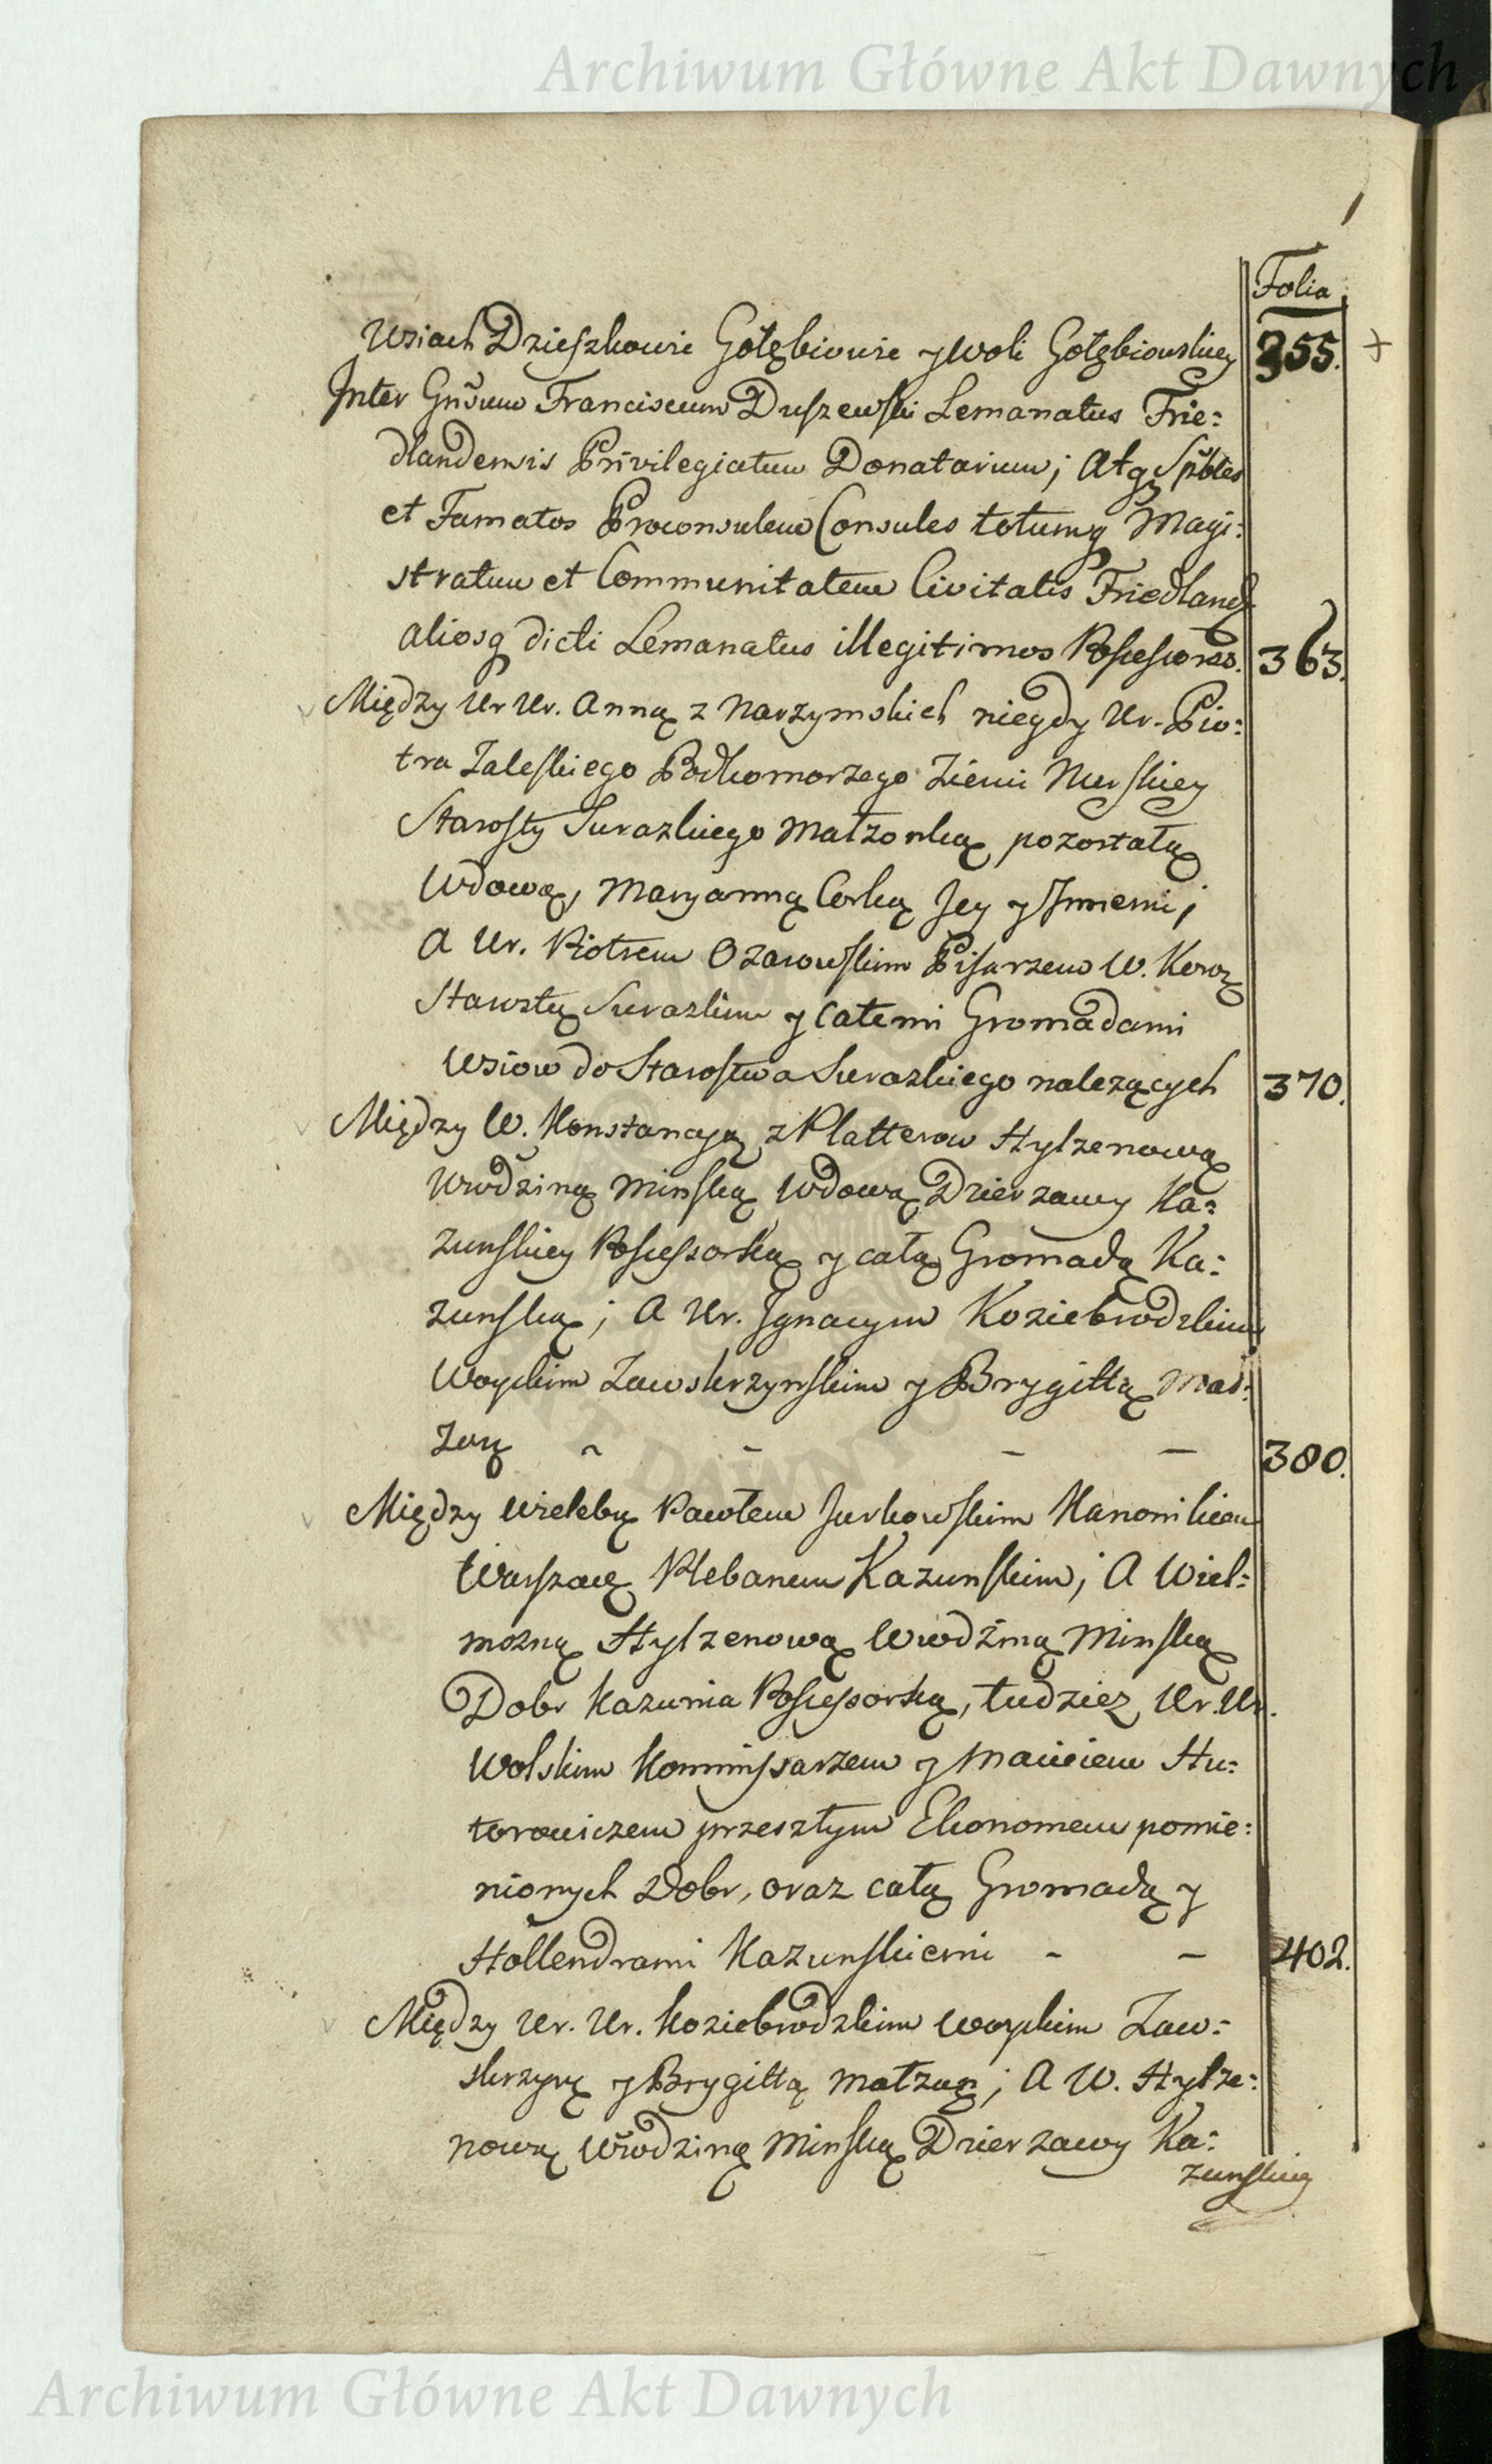 Archiwum Główne Akt Dawnych
Folia
Wsiach Dzieszkowie Gołębiowie y Woli Gołębiowskiey 355. +
Inter Gnsum Franciscum Duszewski Lemanatus Frie:
dlandensis Privilegiatum Donatarium; Atq Spbles
et Famatos Proconsulem Consules totumq Magi:
stratum et Communitatem Civitatis Friedland
aliosq dicti Lemanatus illegitimos Possessores. 363.
Między Ur Ur. Anną z Narzymskich niegdy Ur. Pio:
tra Zaleskiego Podkomorzego Ziemi Nurskiey
Starosty Surazkiego Małżonką pozostałą
Wdową, Maryanną Corką Jey y Jnnemi;
A Ur. Piotrem Ozarowskim Pisarzem W. Koro
Starostą Surazkim y całemi Gromadami
Wsiow do Starostwa Surazkiego nalezących 370.
Między W. Konstancyą z Platterow Hylzenową
Wwdziną Minską Wdową Dzierzawy Ka:
zunskiey Possessorką y całą Gromadą Ka:
zunską; A Ur. Jgnacym Koziebrodzkim
Woyskim Zawskrzynskim y Brygittą Mał:
żon 380.
Między Wieleb Pawłem Jurkowskim Kanonikiem
Warszaw Plebanem Kazunskim; A Wiel:
mozną Hylzenową Wwdziną Minską
Dobr Kazunia Possessorką, tudziez Ur. Ur.
Wolskim Kommissarzem y Maciciem Hu:
torowiczem przeszłym Ekonomem pomie:
nionych Dobr, oraz całą Gromadą y
Hollendrami Kazunskiemi - - 402.
Między Ur. Ur. Koziebrodzkim Woyskim Zaw:
skrzyn y Brygittą Małzon; A W. Hylze:
nową Wwdziną Minską Dzierzawy Ka:
zunskiey
Archiwum Główne Akt Dawnych